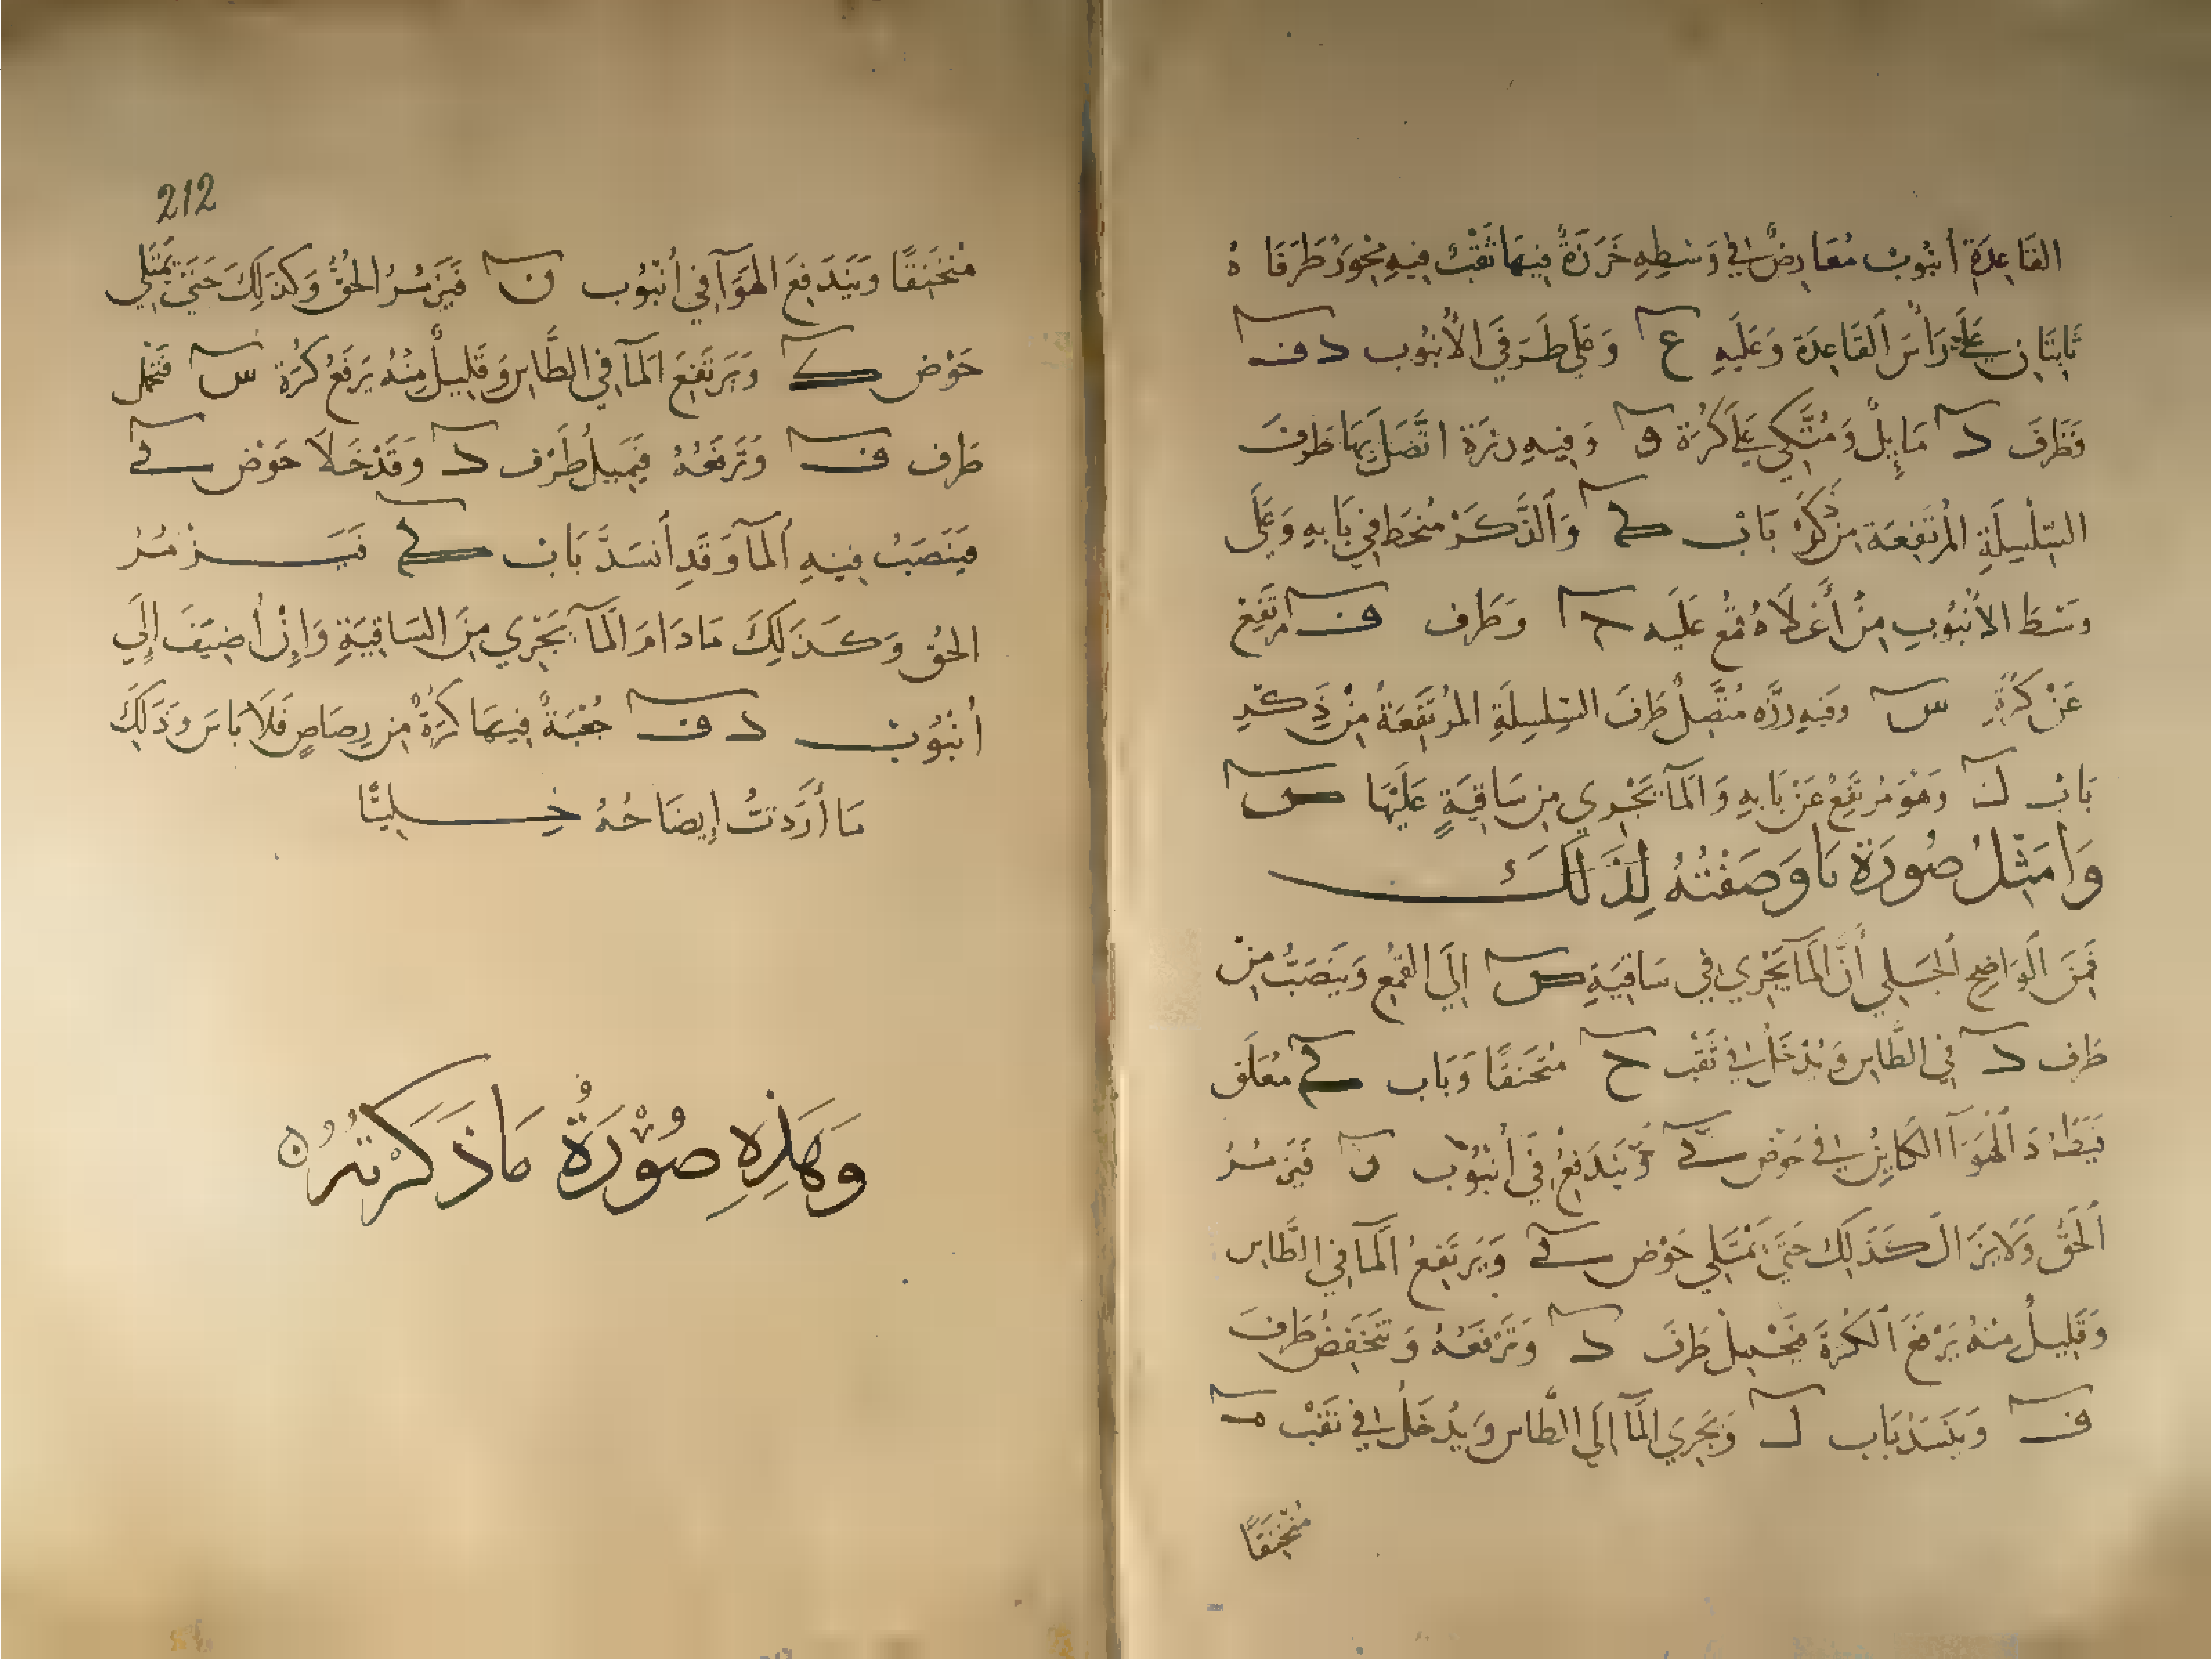 القَاعِدَةِ أنبُوبٌ مُعَارِضٌ في وَسْطِهِ خَرَزَةٌ فِيهَا ثَقْبٌ فِيهِ مِحْوَرٌ طَرَفَاهُ
ثَابِتَانِ عَلَى رَأسِ القَاعِدَة وَعَلَيهِ ع وَعَلى طَرَفَي الأنبُوب د ف
فَطَرَفَ د مَايِلٌ وَمُتَّكِي عَلَى كُرَة و وَفِيهِ رزة اتَّصَلَ بِهَا طَرف
السِّلْسِلَةِ المُرتَفِعَة مِن ذَكَر بَاب ك وَالذَّكَرْ مُنحَط في بَابِهِ وَعَلَى
وَسَطَ الأنبُوبِ مِنْ أَعْلَاهُ قمْع عَلَيه وَطَرف ف مُرتَفِعْ
عَنْ كُرَةِ س وَفيهِ رزَّه مُتَّصِلٌ طَرَفَ السِلسِلَةِ المُرتَفِعَةُ مِنْ ذِكَرِ
بَاب ل وَهُوَ مُرتَفِعٌ عَنْ بَابِهِ وَالمَآ يَجْرِي مِن سَاقِيَةٍ عَلَيْهَا ص
وَامَثِلُ صُورَة مَا وَصَفْتُهُ لِذَلَكَ
فَمِنَ الوَاضِح الجَلي أَنَّ المَآ يَجْرِي في سَاقِيَةِ ص إلَى القمْع وَيَنصَبُّ مِنْ
طَرف د في الطَّاس وَيُدْخَلُ في ثَقْب ح مُتخَنقًا وَبَاب ك مُعَلَق
فَيَطْرُدَ الهَوَآ الكَايِن في حَوْض ك وَيَندَفِعُ في أنبُوب ن فَيَزمُرُ
الحُقُّ وَلَا يَزَال كَذَلِك حَتَى يَمْتَلي حَوْض ك وَيَرتَفِعُ المَآ في الطَّاس
وَقَلِيلٌ مِنهُ يَرْفَعَ الكُرَة فَتحْمِل طَرَف د وَتَرْفَعُهُ وَتَنخَفِضُ طَرفَ
ف وَيَنسَدّ بَاب ل وَيَجْرِي المَآ إلَى الطَّاس وَيُدْخَلُ في ثَقْب م
مُتْخَنِقًا
212
مُتْخَنِقًا وَيَندَفِعَ الهَوَآ في أنْبُوب ن فَيَزمُرُ الحُقُّ وَكَذَلِكَ حَتَى يَمْتَلي
حَوْض ك وَيَرتَفِعَ المَآ في الطَّاسِ وَقَلِيلٌ مِنْهُ يَرفَعُ كُرَة س فتَحْمل
طَرف ف وَتَرفَعُهُ فَيَمِيلُ طَرْف د وَقَدْ خَلَا حَوْض ك
فَيَنصَبُ فِيهِ المَآ وَقَدِ أنسَدَّ بَاب ك فَيَزمُرُ
الحُقُّ وَكَذَلِكَ مَا دَامَ المَآ يَجْرِي مِنَ السَاقِيَةِ وَإِنْ أضِيفَ إِلَي
أنْبُوبْ د ف جُعْبَةً فِيهَا كُرَةٌ مِن رِصَاصٍ فَلَا بَاسَ وَذَلِكَ
مَا أَرَدتُ إِيضَاحُهُ جَلِيًّا
وَهَذِهِ صُوْرَةُ مَا ذَكَرْتُهُ